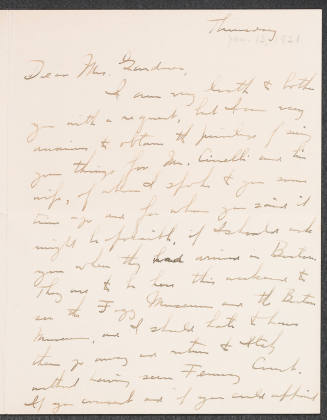 Thursday
Jan. 13, 1921
Dear Mrs. Gardner,
I am very loath to bother
you with a request, but I am very
anxious to obtain the privilege of seeing
your things for Mr. Cinelli and his
wife, of whom I spoke to you some
time ago and for whom you said it
might be possible, if I should ask
you when they had arrived in Boston.
They are to be here this weekend to
see the Fogg Museum and the Boston
Museum, and I should hate to have
them go away and return to Italy
without having seen Fenway Court.
If you consent and if you could appoint